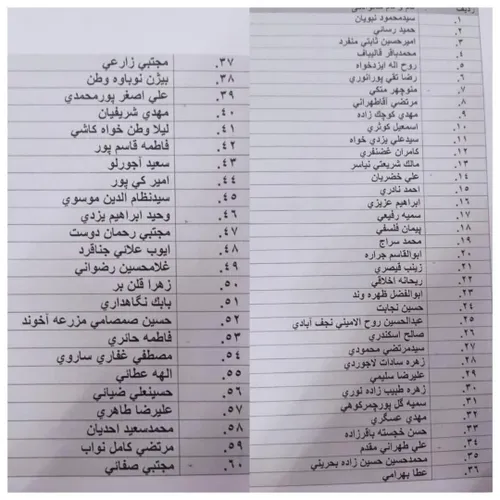 ردیف
.۱ سیدمحمود نبویان
.۲ حمید رسائی
.۳ امیرحسین ثابتی منفرد
.۴ محمدباقر قالیباف
.۵ روح اله ایزدخواه
.۶ رضا تقی پورانوری
.۷ منوچهر متکی
.۸ مرتضی آقاطهرانی
.۹ مهدی کوچک زاده
.۱۰ اسمعیل کوثری
.۱۱ سیدعلی یزدی خواه
.۱۲ کامران غضنفری
.۱۳ مالک شریعتی نیاسر
.۱۴ علی خضریان
.۱۵ احمد نادری
.۱۶ ابراهیم عزیزی
.۱۷ سمیه رفیعی
.۱۸ پیمان فلسفی
.۱۹ محمد سراج
.۲۰ ابوالقاسم جراره
.۲۱ زینب قیصری
.۲۲ ریحانه اخلاقی
.۲۳ ابوالفضل ظهره وند
.۲۴ حسین نجابت
.۲۵ عبدالحسین روح الامینی نجف آبادی
.۲۶ صالح اسکندری
.۲۷ سیدمرتضی محمودی
.۲۸ زهره سادات لاجوردی
.۲۹ علیرضا سلیمی
.۳۰ زهره طبیب زاده نوری
.۳۱ سمیه گل پورچمرکوهی
.۳۲ مهدی عسگری
.۳۳ حسن خجسته باقرزاده
.۳۴ علی طهرانی مقدم
.۳۵ محمدحسین حسین زاده بحرینی
.۳۶ عطا بهرامی
.۳۷ مجتبی زارعی
.۳۸ بیژن نوباوه وطن
.۳۹ علی اصغر پورمحمدی
.۴۰ مهدی شریفیان
.۴۱ لیلا وطن خواه کاشی
.۴۲ فاطمه قاسم پور
.۴۳ سعید آجورلو
.۴۴ امیر کی پور
.۴۵ سیدنظام الدین موسوی
.۴۶ وحید ابراهیم یزدی
.۴۷ مجتبی رحمان دوست
.۴۸ ایوب علائی جناقرد
.۴۹ غلامحسین رضوانی
.۵۰ زهرا قلن بر
.۵۱ بابک نگاهداری
.۵۲ حسین صمصامی مزرعه آخوند
.۵۳ فاطمه حائری
.۵۴ مصطفی غفاری ساروی
.۵۵ الهه عطائی
.۵۶ حسینعلی ضیائی
.۵۷ علیرضا طاهری
.۵۸ محمدسعید احدیان
.۵۹ مرتضی کامل نواب
.۶۰ مجتبی صفائی